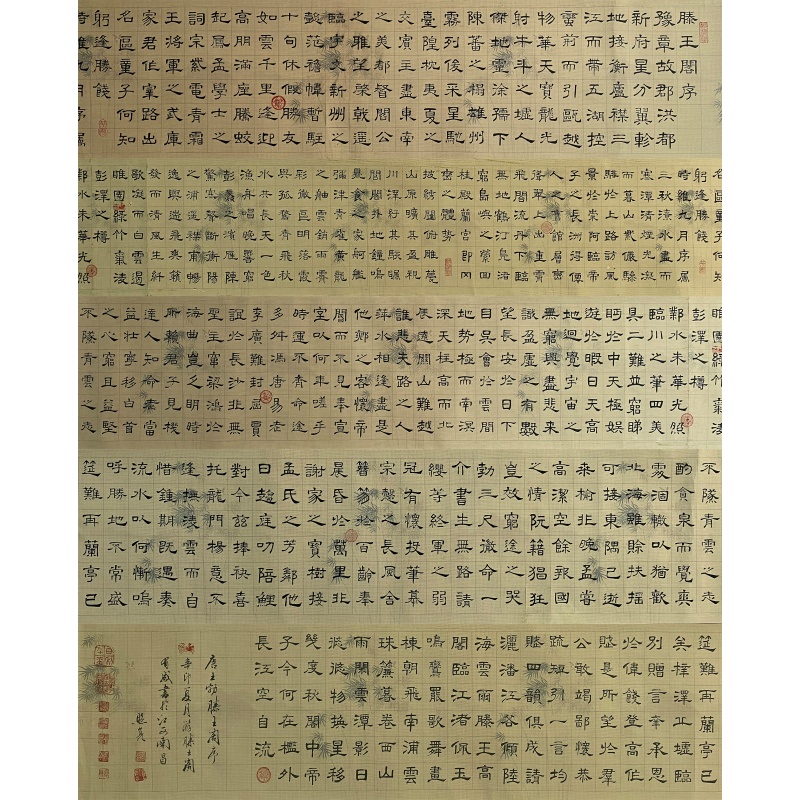 滕王閣序
豫章故郡洪都
新府星分翼軫
地接衡廬襟三
江而帶五湖控
蠻荊而引甌越
物華天寶龍光
射牛斗之墟人
傑地靈徐孺下
陳蕃之榻雄州
霧列俊采星馳
臺隍枕夷夏之
交賓主盡東南
之美都督閻公
之雅望棨戟遙
臨宇文新州之
懿范襜帷暫駐
十旬休假勝友
如雲千里逢迎
高朋滿座騰蛟
起鳳孟學士之
詞宗紫電青霜
王將軍之武庫
家君作宰路出
名區童子何知
躬逢勝餞
時維九月序屬
名區童子何知
躬逢勝餞
時維九月序屬
三秋潦水盡而
寒潭清煙光凝
而暮山紫儼驂
騑於上路訪風
景於崇阿臨帝
子之長洲得僊
人之舊館層巒
聳翠上出重霄
飛閣流丹下臨
無地鶴汀鳧渚
窮島嶼之縈回
桂殿蘭宮即岡
巒之體勢
披繡闥俯雕甍
山原曠其盈視
川澤紆其駭矚
閭閻撲地鐘鳴
鼎食之家舸艦
彌津青雀黃龍
之舳雲銷雨霽
彩徹區明落霞
與孤鶩齊飛秋
水共長天一色
漁舟唱晚響窮
彭蠡之濱雁陣
驚寒聲斷衡陽
之浦遙襟甫暢
逸興遄飛爽籟
發而清風生纖
歌凝而白雲遏
睢園綠竹氣凌
彭澤之樽
鄴水朱華光照
睢園綠竹氣凌
彭澤之樽
鄴水朱華光照
臨川之筆四美
具二難並窮睇
眄於中天極娛
遊於暇日天高
地迥覺宇宙之
無窮興盡悲來
識盈虛之有數
望長安於日下
目吳會於雲間
地勢極而南溟
深天柱高而北
辰遠關山難越
誰悲失路之人
萍水相逢盡是
他鄉之客懷帝
閽而不見奉宣
室以何年嗟乎
時運不齊命途
多舛馮唐易老
李廣難封屈賈
誼於長沙非無
聖主竄梁鴻於
海曲豈乏明時
所賴君子見機
達人知命老當
益壯寧移白首
之心窮且益堅
不墜青雲之志
不墜青雲之志
酌貪泉而覺爽
處涸轍以猶歡
北海雖賒扶搖
可接東隅已逝
桑榆非晚孟嘗
高潔空餘報國
之情阮籍猖狂
豈效窮途之哭
勃三尺微命一
介書生無路請
纓等終軍之弱
冠有懷投筆慕
宗愨之長風舍
簪笏於百齡奉
晨昏於萬里非
謝家之寶樹接
孟氏之芳鄰他
日趨庭叨陪鯉
對今茲捧袂喜
托龍門楊意不
逢撫凌雲而自
惜鍾期既遇奏
流水以何慚嗚
呼勝地不常盛
筵難再蘭亭已
筵難再蘭亭已
矣梓澤丘墟臨
別贈言幸承恩
於偉餞登高作
賦是所望於群
公敢竭鄙懷恭
疏短引一言均
賦四韻俱成請
灑潘江各傾陸
海雲爾滕王高
閣臨江渚佩玉
鳴鸞罷歌舞畫
棟朝飛南浦雲
珠簾暮卷西山
雨閑雲潭影日
悠悠物換星移
幾度秋閣中帝
子今何在檻外
長江空自流
唐王勃滕王閣序
辛卯夏月游滕王閣
有感書於江西南昌